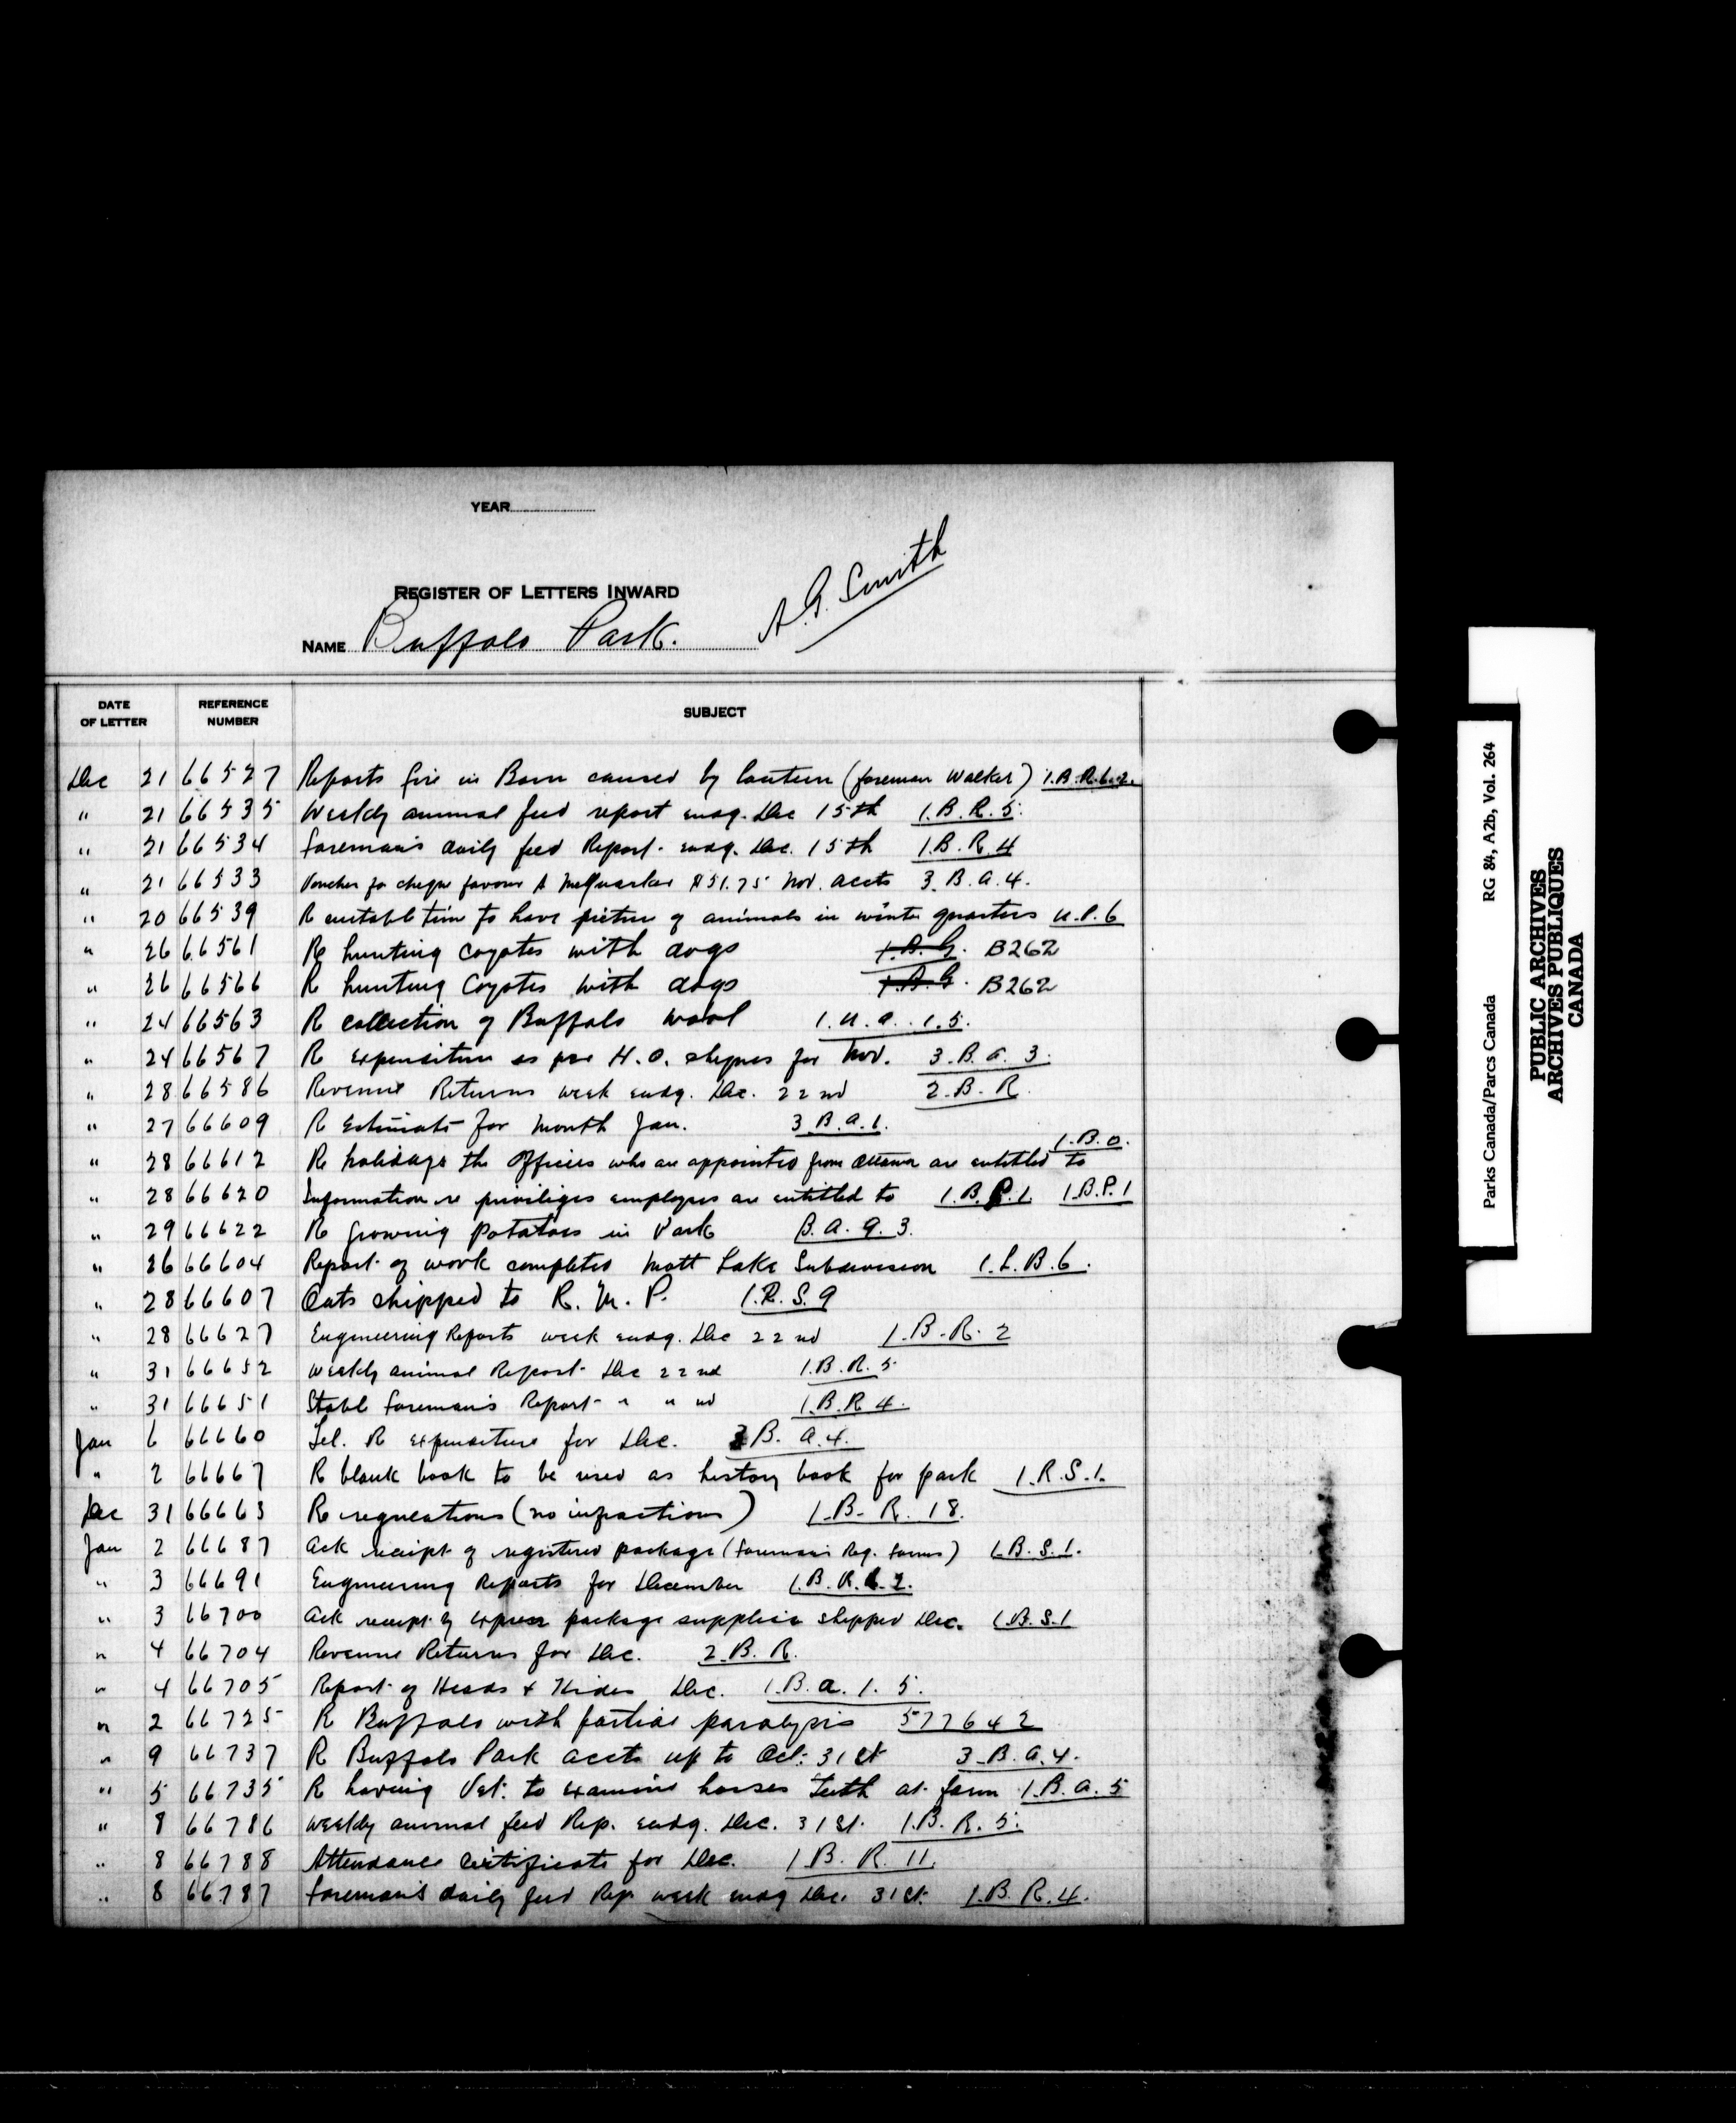 YEAR
REGISTER OF LETTERS INWARD
NAME Buffalo Park. A.G. Smith
DATE OF LETTER REFERENCE NUMBER SUBJECT
Dec 21 66527 Reports fire in Barn caused by lantern (foreman Walker) 1.B.R.6.2.
" 21 66535 Weekly animal feed report endg. Dec 15th 1.B.R.5.
" 21 66534 Foreman's daily feed Report. endg. Dec. 15th 1.B.R.4
" 21 66533 Voucher for cheque favour A $51.75 Nov. accts 3.B.a.4.
" 20 66539 R suitable time to have picture of animals in winter quarters U.P.6
" 26 66561 Re hunting coyotes with dogs 1.B.G. B262
" 26 66566 R hunting Coyotes with dogs 1.B.G. B262
" 24 66563 R collection of Buffalo wool 1.U.a.1.5.
" 24 66567 R expenditure as per H.O. cheques for Nov. 3.B.a.3.
" 28 66586 Revenue Returns week endg. Dec. 22nd 2.B.R.
" 27 66609 R Estimate for month Jan. 3.B.a.1.
" 28 66612 Re holidays the Officers who are appointed from Ottawa are entitled to 1.B.O.
" 28 66620 Information re priviliges employees are entitled to 1.B.P.1. 1.B.P.1
" 29 66622 R growing potatoes in Park B.a.9.3.
" 26 66604 Report of work completed Mott Lake Subdivision 1.L.B.6.
" 28 66607 Oats shipped to R.M.P. 1.R.S.9
" 28 66627 Engineering Reports week endg. Dec 22nd 1.B.R.2
" 31 66652 Weekly animal Report Dec 22nd 1.B.R.5
" 31 66651 Stable Foreman's Report " " nd 1.B.R.4.
Jan 6 66660 Tel. R expenditure for Dec. 3B.a.4.
" 2 66667 R blank book to be used as history book for park 1.R.S.1.
Dec 31 66663 R regulations (no infractions) 1.B.R.18.
Jan 2 66687 Ack receipt of registered package (Foreman's Reg. forms) 1.B.S.1.
" 3 66691 Engineering Reports for December 1.B.R.2.
" 3 66700 Ack receipt of express package supplies shipped Dec. 1.B.S.1
" 4 66704 Revenue Returns for Dec. 2.B.R.
" 4 66705 Report of Heads & Hides Dec. 1.B.a.1.5.
" 2 66725 R Buffalo with partial paralysis 577642
" 9 66737 R Buffalo Park accts up to Oct. 31st 3.B.a.4.
" 5 66735 R having Vet. to examine horses teeth at farm 1.B.a.5
" 8 66786 Weekly animal feed Rep. endg. Dec. 31st. 1.B.R.5.
" 8 66788 Attendance Certificate for Dec. 1.B.R.11.
" 8 66787 Foreman's daily feed Rep. week endg Dec. 31st. 1.B.R.4.
Parks Canada/Parcs Canada RG 84, A2b, Vol. 264
PUBLIC ARCHIVES
ARCHIVES PUBLIQUES
CANADA